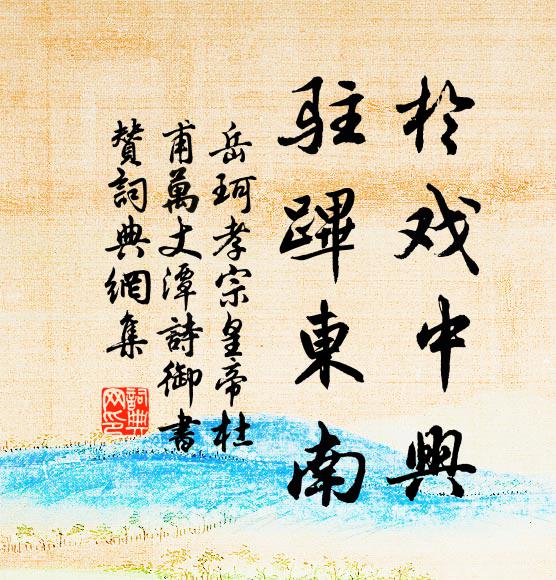 於戏中興
駐蹕東南
岳珂孝宗皇帝杜
甫萬丈潭詩御書
贊詞典網集
詞典
网印